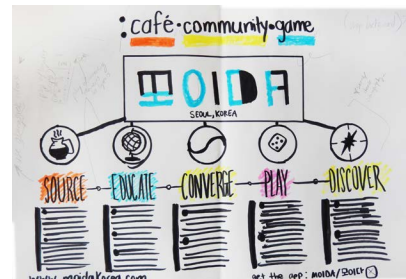 :café·community·game
MOIDA
SEOUL, KOREA
SOURCE EDUCATE CONVERGE PLAY DISCOVER
www.moidakorea.com
get the app: MOIDA/모이다